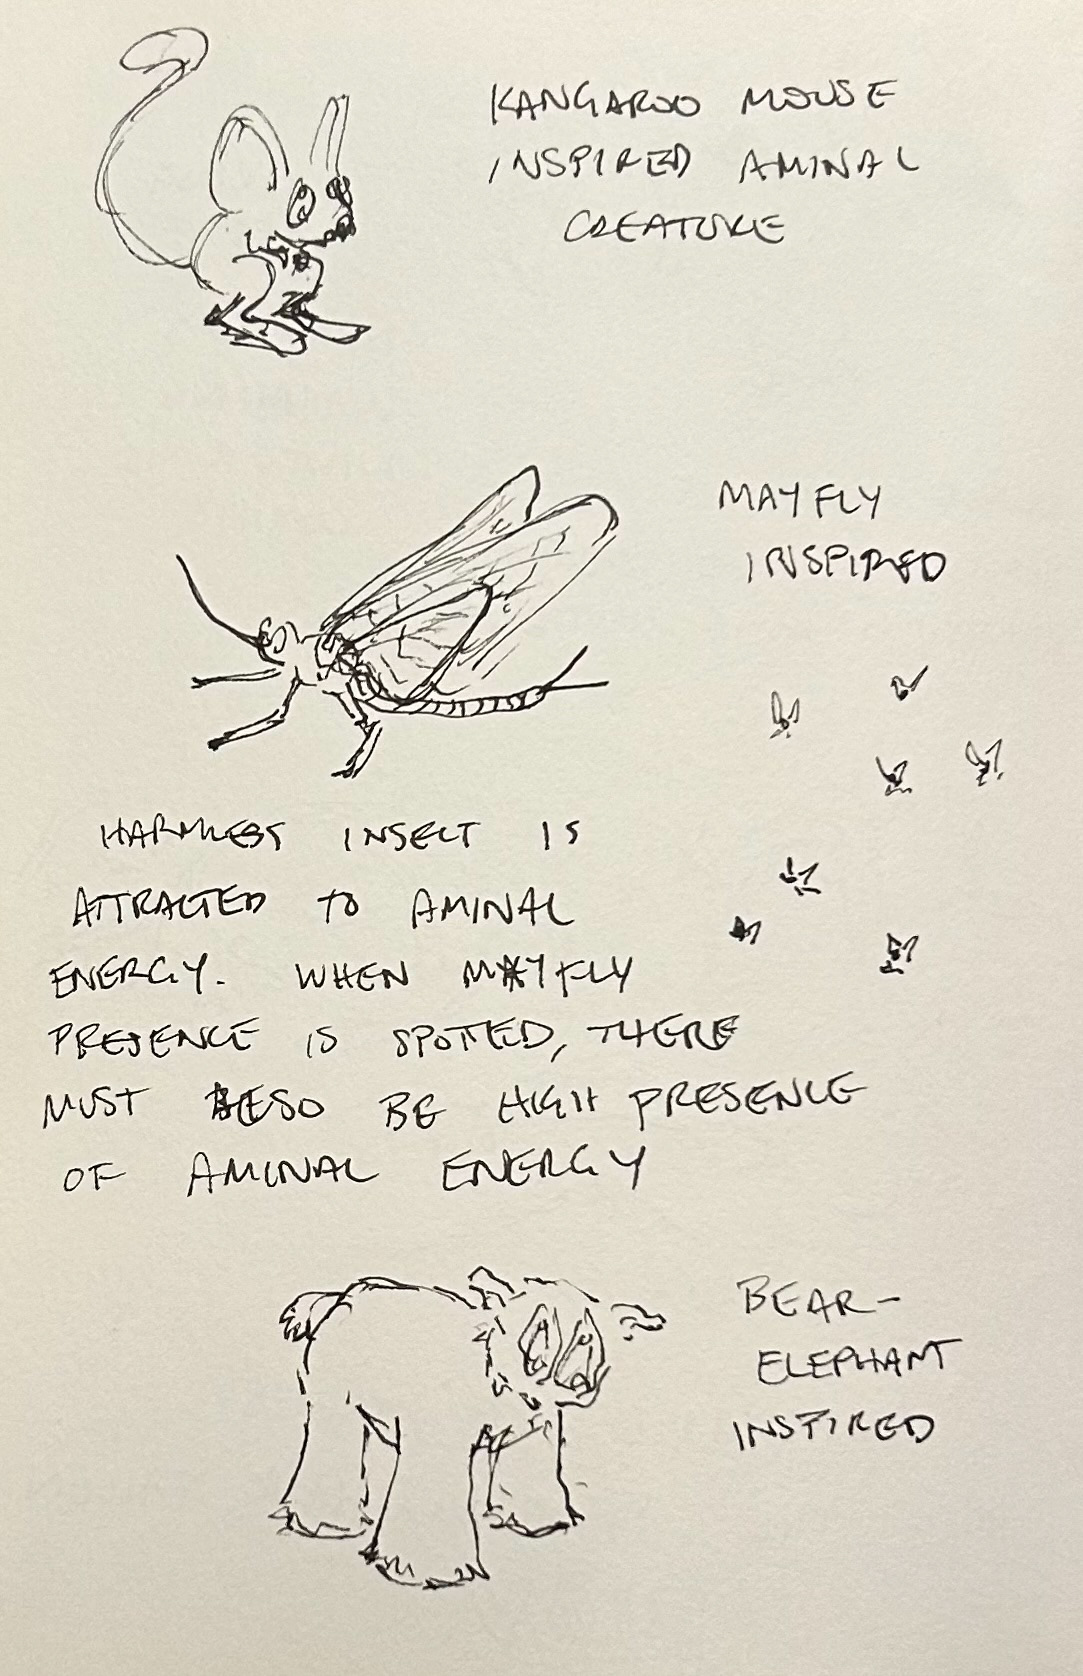 KANGAROO MOUSE
INSPIRED AMINAL
CREATURE
MAYFLY
INSPIRED
HARMLESS INSECT IS
ATTRACTED TO AMINAL
ENERGY. WHEN MAYFLY
PRESENCE IS SPOTTED, THERE
MUST BE HIGH PRESENCE
OF AMINAL ENERGY
BEAR-
ELEPHANT
INSPIRED